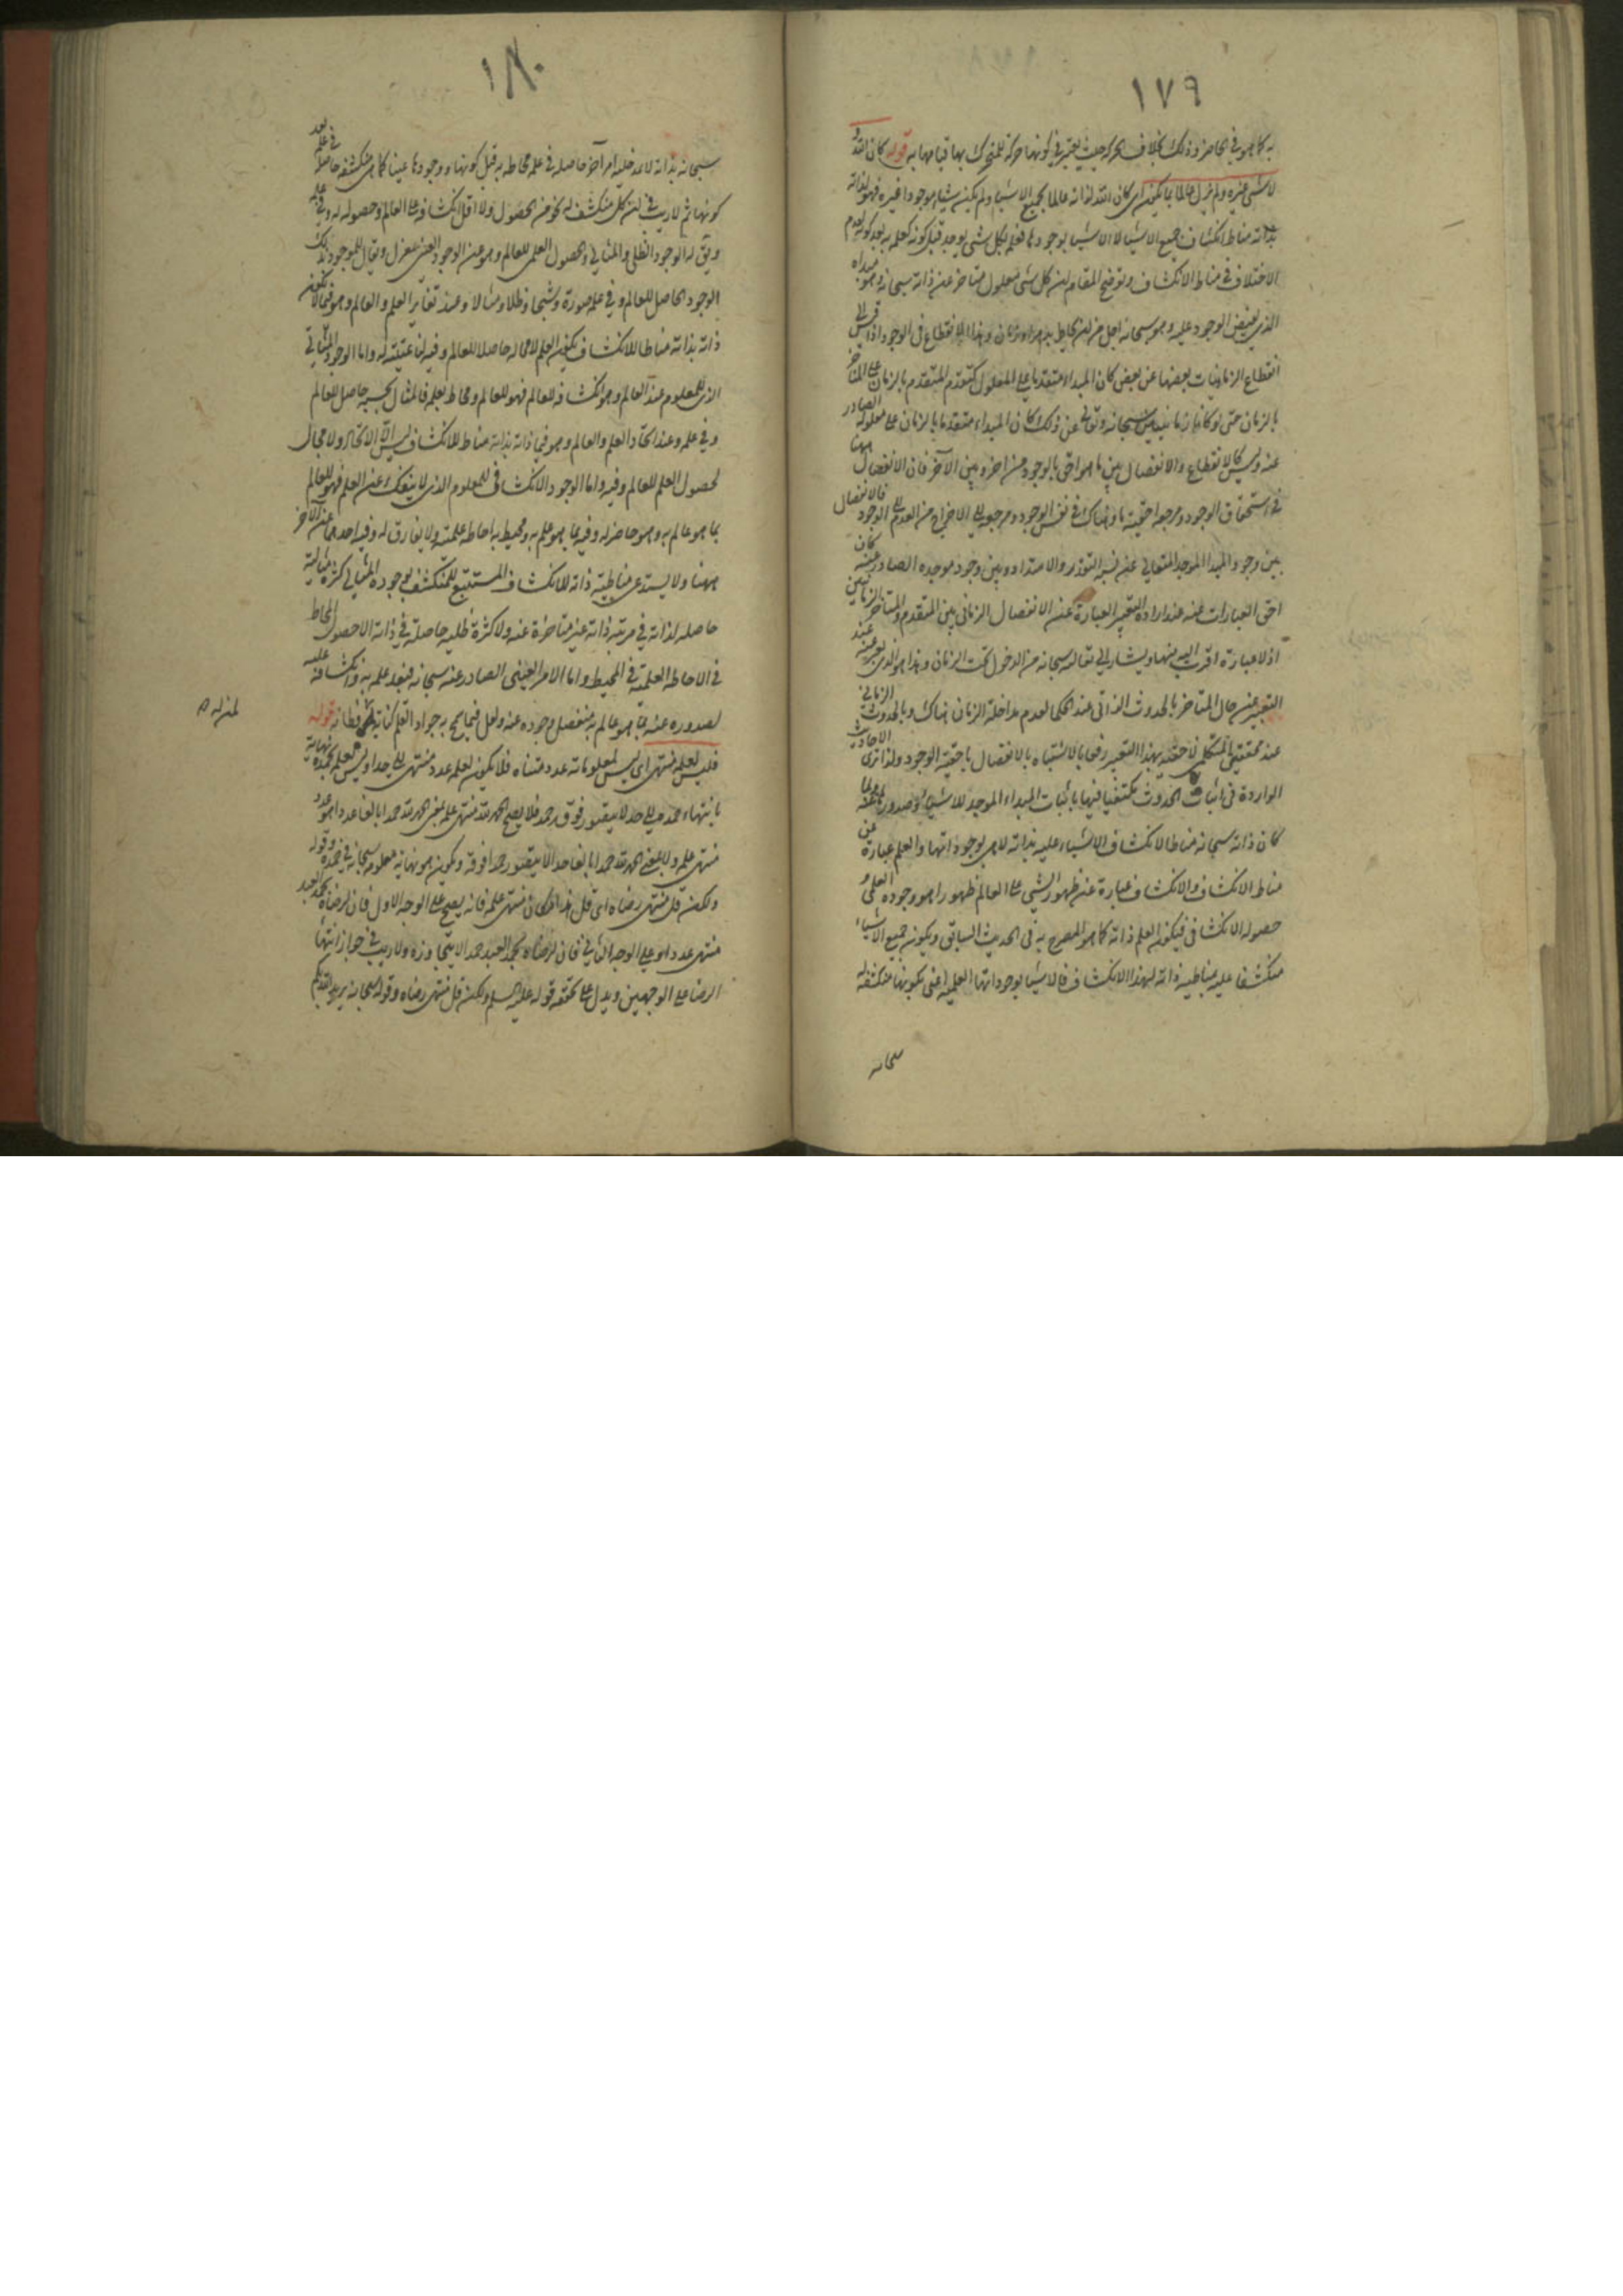 ١٧٩
به كما هو في الحاضر وذلك بخلاف الحركة حيث يعتبر في كونها حركة للمتحرك بها قيامها به قوله كان الله و
لا شئ غيره ولم يزل عالما بما يكون اى كان الله لذاته عالما بجميع الاشياء ولم يكن شيئا موجودا غيره فهو لذاته
بذاته مناط انكشاف جميع الاشياء لا الاشياء بوجودها فعلمه بكل شئ يوجد قبل كونه كعلمه به بعد كونه لعدم
الاختلاف في مناط الانكشاف وتوضيح المقام ان كل شئ معلول متاخر عن ذاته سبحانه وهو مبداه
الذي يفيض الوجود عليه وهو سبحانه اجل من ان يحاط بزمان وهذا الانقطاع في الوجود اذا قيس الى
انقطاع الزمانيات بعضها عن بعض كان المبداء متقدما على المعلول كتقدم المتقدم بالزمان على المتاخر
بالزمان حتى لو كانا زمانيين سبحانه وتعالى عن ذلك كان المبداء متقدما بالزمان على معلوله الصادر
عنه وليس كالانقطاع والانفصال بين ما هو احق بالوجود من اخر وبين الاخر فان الانفصال ههنا
في استحقاق الوجود ومرجعه احقية ما وهناك في نفس الوجود ومرجعه الى الاخراج من العدم الى الوجود فالانفصال
بين وجود المبدا الموجد المتعالي عن نسبة التقدر والامتداد وبين وجود موجده الصادر عنه كان
احق العبارات عنه عند ارادة التعبير العبارة عن الانفصال الزماني بين المتقدم والمتاخر الزمانيين
اذ لا عبارة اقرب اليه منها ويشار الى تعاليه سبحانه من الدخول تحت الزمان وهذا هو الذي يعبر عنه عند
التعبير عن حال المتاخر بالحدوث الذاتي عند الحكما لعدم مداخلة الزمان هناك وبالحدوث الزماني
عند محققي المتكلمين لاحقية بهذا التعبير رفعا بالاشتباه بالانفصال باحقية الوجود ولذا ترى الاحاديث
الواردة في اثبات الحدوث مكتفيا فيها باثبات المبداء الموجد للاشياء وصدورها عنه ولما
كان ذاته سبحانه مناطا لانكشاف الاشياء عليه بذاته لا هي بوجوداتها والعلم عبارة عن
مناط الانكشاف والانكشاف عبارة عن ظهور الشئ على العالم ظهورا هو وجوده العلمي و
حصوله الانكشافي فيكون العلم ذاته كما هو المصرح به في الحديث السابق ويكون جميع الاشياء
منكشفا عليه بمناطية ذاته لهذا الانكشاف فالاشياء بوجوداتها العلمية اعني بكونها منكشفة له
سبحانه
١٨٠
سبحانه بذاته لا بمدخلية امر آخر حاصلة في علمه محاطة به قبل كونها ووجودها عينا كما هي منكشفة حاصلة في علمه بعد
كونها ثم لا ريب في ان كل منكشف له نحو من الحصول ولا اقل انكشافه على العالم وحصوله له وفي علمه
ويق له الوجود الظلي والمثالي والحصول العلمي للعالم وهو عن الوجود العيني بمعزل ويقال للموجود بذلك
الوجود الحاصل للعالم وفي علمه صورة وشبحا وظلا ومثالا وعند تغاير العلم والعالم وهو فيما لا يكون
ذاته بذاته مناطا للانكشاف يكون العلم لا محالة حاصلا للعالم وفيه لا عينية له واما الوجود المثالي
الذي للمعلوم عند العالم وهو انكشافه للعالم فهو للعالم ومحاط بعلمه فالمثال بحسبه حاصل للعالم
وفي علمه وعند اتحاد العلم والعالم وهو فيما ذاته بذاته مناط للانكشاف ليس الا الاتحاد ولا مجال
لحصول العلم للعالم وفيه واما الوجود الانكشافي للمعلوم الذي لا ينفك عن العلم فهو للعالم
بما هو عالم به وهو حاضر له وفيه بما هو علم به ومحيط به احاطة علمية ولا يفارق له وفيه احدهما عن الآخر
ههنا ولا يستدعي مناطية ذاته للانكشاف المستتبع للمنكشف بوجوده المثالي كثرة مثالية
حاصلة لذاته في مرتبة ذاته غير متاخرة عنه ولا كثرة ظلية حاصلة في ذاته الا حصول المحاط
في الاحاطة العلمية في المحيط واما الامر العيني الصادر عنه سبحانه فبعد علمه به وانكشافه عليه
لصدوره عنه بما هو عالم به منفصل وجوده عنه ولعل فيما يسمح به جواد القلم كفاية فطانة قوله
لمن له ص
فليس لعلمه منتهى اى ليس لمعلوماته عدد متناه فلا يكون لعلمه عدد منتهى الى حد او ليس لعلمه بحمده نهاية
بانتهاء حمده الى حد لا يتصور فوقه حمد فلا يصح الحمد لله منتهى علمه بمعنى الحمد لله حمدا بالغا عددا هو عدد
منتهى علمه ولا بمعنى الحمد لله حمدا بالغا حدا لا يتصور حد فوقه ويكون هو نهاية معلومه سبحانه في حمده وقوله
ولكن قل منتهى رضاه اى قل هذا مكان منتهى علمه فانه يصح على الوجه الاول فان لرضاه بحمد العبد
منتهى عددا وعلى الوجه الثاني فان لرضاه بحمد العبد حدا لا يتجاوزه ولا ريب في جواز انتهاء
الرضا على الوجهين ويدل على صحته قوله عليه السلم ولكن قل منتهى رضاه وقوله